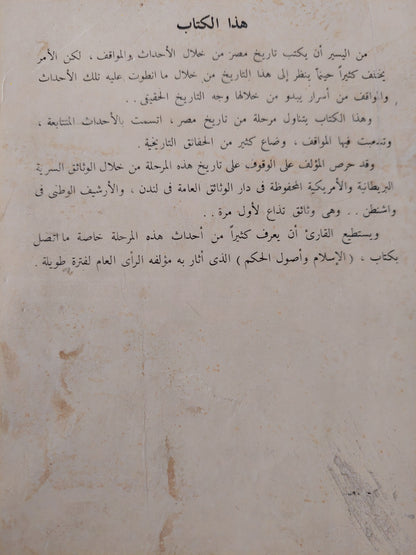 هذا الكتاب
من اليسير أن يكتب تاريخ مصر من خلال الأحداث والمواقف ، لكن الأمر
يختلف كثيراً حينما ينظر إلى هذا التاريخ من خلال ما انطوت عليه تلك الأحداث
والمواقف من أسرار يبدو من خلالها وجه التاريخ الحقيقى . .
وهذا الكتاب يتناول مرحلة من تاريخ مصر ، اتسمت بالأحداث المتتابعة ،
وتداعت فيها المواقف ، وضاع كثير من الحقائق التاريخية .
وقد حرص المؤلف على الوقوف على تاريخ هذه المرحلة من خلال الوثائق السرية
البريطانية والأمريكية المحفوظة فى دار الوثائق العامة فى لندن ، والأرشيف الوطنى فى
واشنطن . . وهى وثائق تذاع لأول مرة . .
ويستطيع القارئ أن يعرف كثيراً من أحداث هذه المرحلة خاصة ما اتصل
بكتاب ، ( الإسلام وأصول الحكم ) الذى أثار به مؤلفه الرأى العام لفترة طويلة .